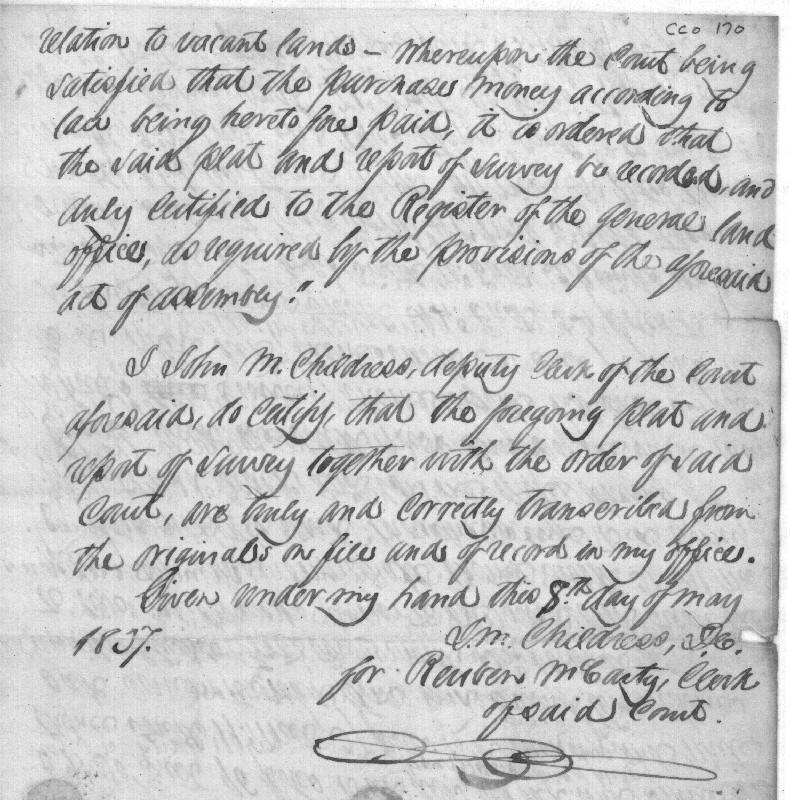 CCO 170
relation to vacant lands – whereupon the Court being
satisfied that the purchase money according to
law being heretofore paid, it is ordered that
the said plat and report of survey be recorded, and
duly certified to the Register of the general land
office, as required by the provisions of the aforesaid
act of assembly."
I John M. Childress, deputy Clerk of the Court
aforesaid, do certify, that the foregoing plat and
report of survey together with the order of said
Court, are truly and correctly transcribed from
the originals on file and of record in my office.
Given under my hand this 8th day of May
1837.
J. M. Childress, D.C.
for Reuben McCarty, Clerk
of said Court.